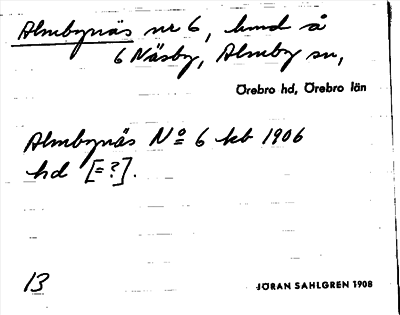 Almbynäs nr 6, hmd å
6 Näsby, Almby sn,
Örebro hd, Örebro län
Almbynäs No 6 kb 1906
hd [=?].
13
JÖRAN SAHLGREN 1908